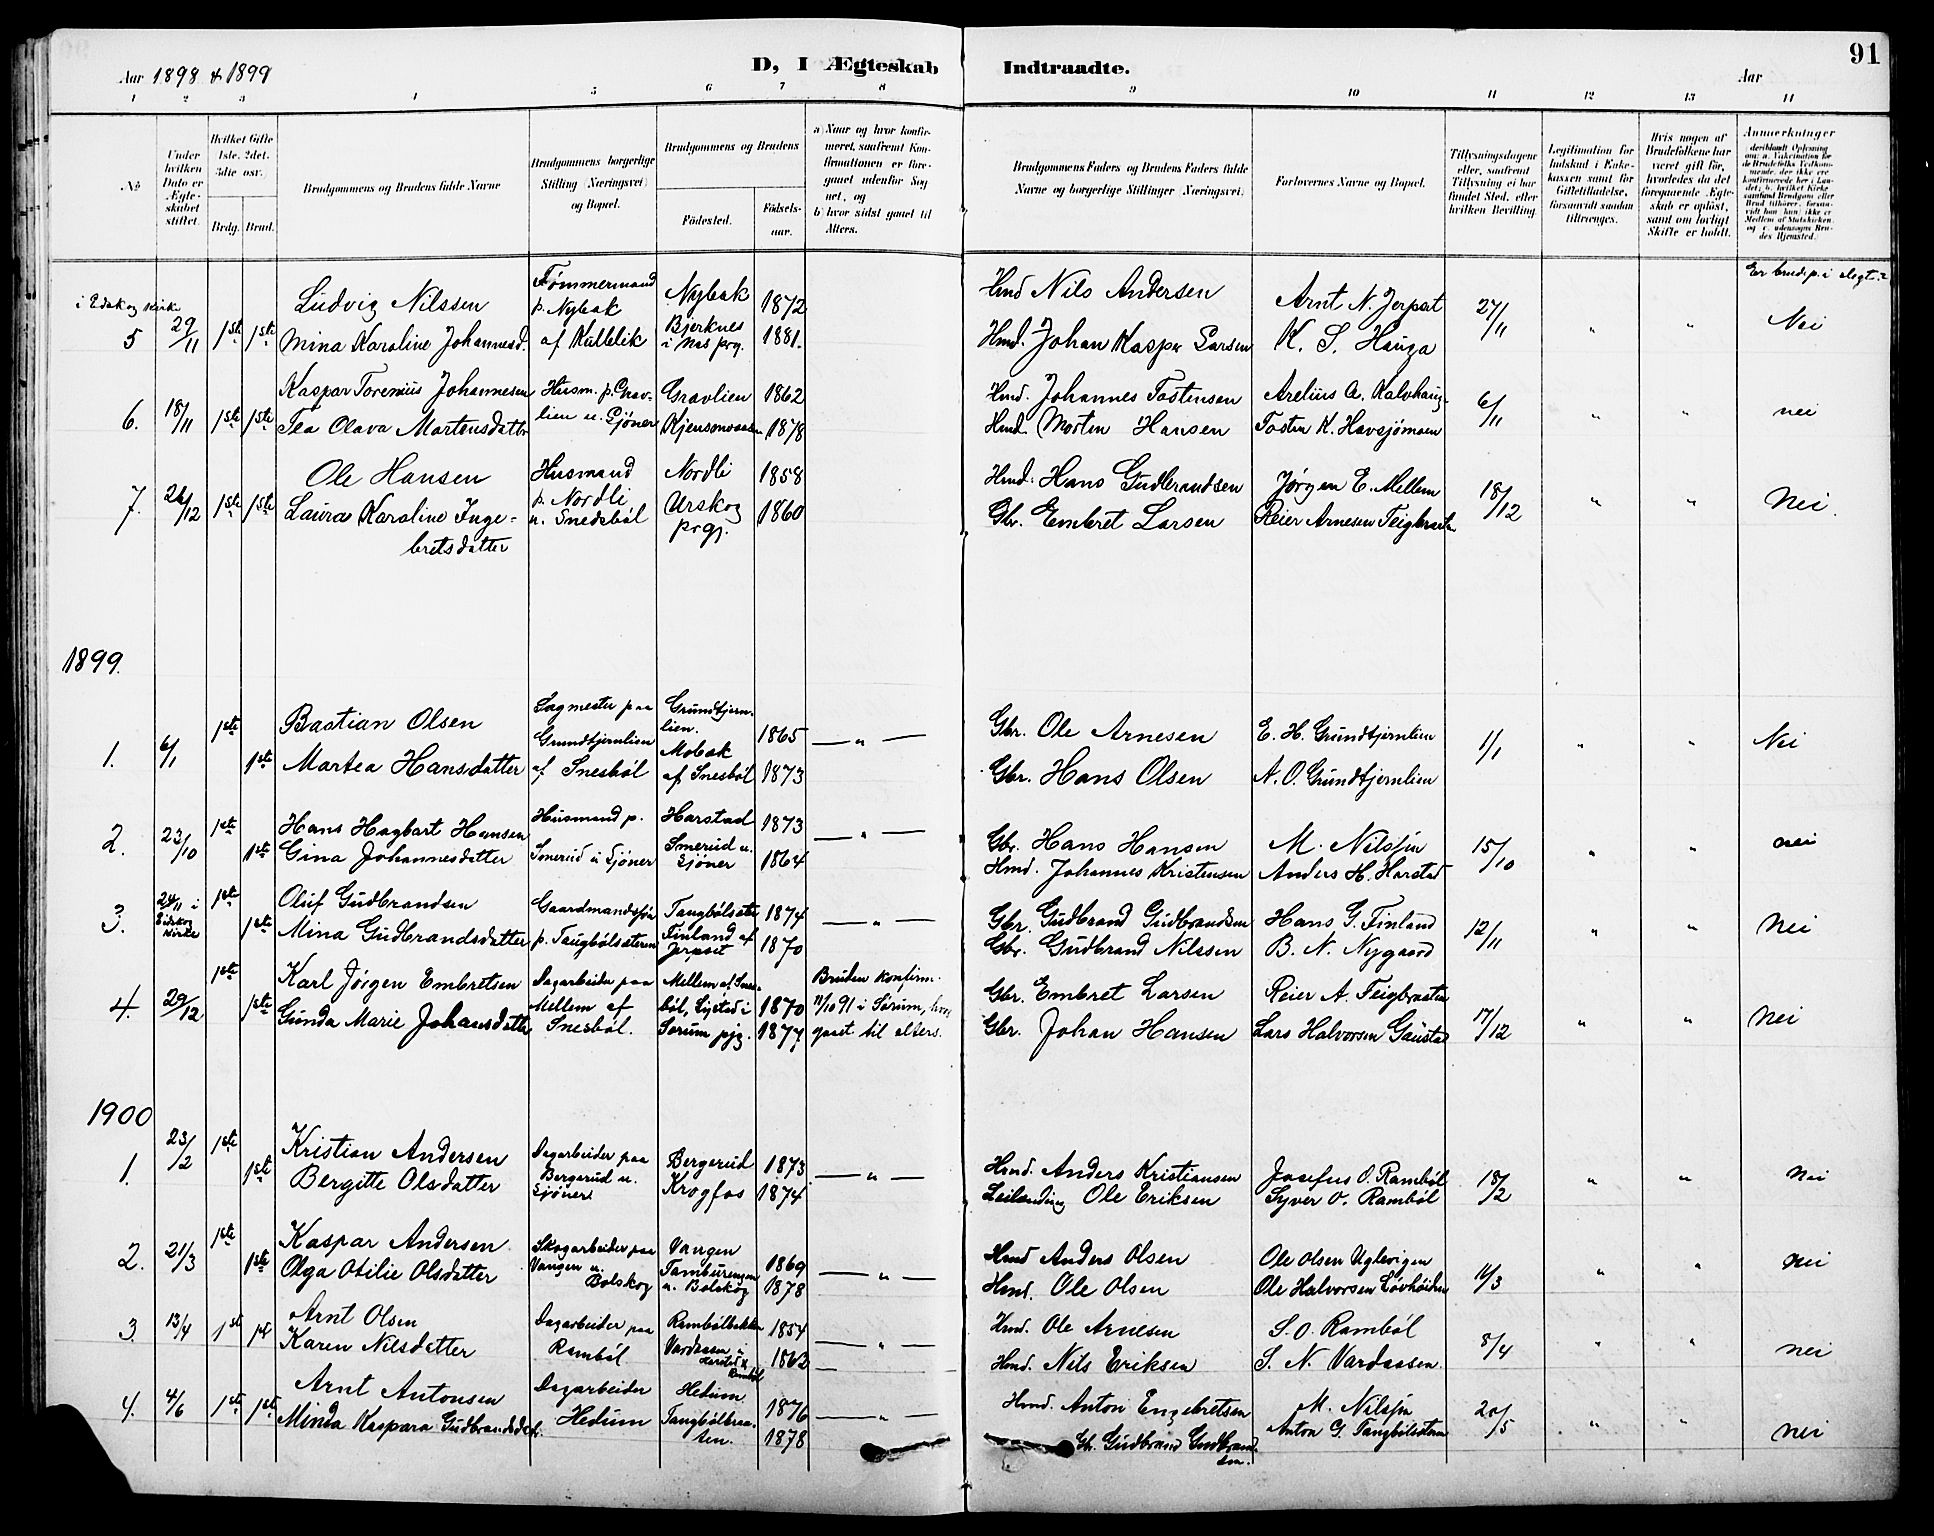 91
Aar 1898 & 1899
D, I Ægteskab Indtraadte.
Aar
1 2 3 4 5 6 7 8 9 10 11 12 13 14
No
Under hvilken Dato er Ægteskabet stiftet.
Hvilket Gifte 1ste, 2det, 3die osv.
Brdg. Brud.
Brudgommens og Brudens fulde Navne
Brudgommens borgerlige Stilling (Næringsvei) og Bopæl.
Brudgommens og Brudens
Fødested.
Fødselsaar.
a) Naar og hvor konfirmeret, saafremt Konfirmationen er foregaaet udenfor Sognet, og
b) hvor sidst gaaet til Alters.
Brudgommens Faders og Brudens Faders fulde Navne og borgerlige Stillinger (Næringsvei).
Forlovernes Navne og Bopæl.
Tillysningsdagene eller, saafremt Tillysning ei har fundet Sted, efter hvilken Bevilling.
Legitimation for Indskud i Enkekassen samt for Giftetilladelse, forsaavidt saadan tiltrænges.
Hvis nogen af Brudefolkene har været gift før, hvorledes da det foregaaende Ægteskab er opløst, samt om lovligt Skifte er holdt.
Anmerkninger
Er brudep. i slegt?
i Edskog Kirke
5 29/11 1ste 1ste
Ludvig Nilssen
Mina Karoline Johannesd.
Tømmermand
p. Nybak
af Kallelik
Nybak 1872
Bjerknes
i Nes prg. 1881.
Hmd Nils Andersen
Hmd. Johan Kasper Larsen
Arnt N. Jerpset
K. S. Hauga
27/11 " " Nei
6. 18/11 1ste 1ste
Kaspar Torenius Johannesen
Tea Olava Martensdatter
Husm. p. Gravlien u. Sjöner
Gravlien 1862
1878
Hmd. Johannes Tostensen
Hmd. Morten Hansen
Arelius A. Kalvhaug
Tosten K. Havsjömoen
6/11 " " nei
7. 26/12 1ste 1ste
Ole Hansen
Laura Karoline Ingebretsdatter
Husmand
p. Nordli
u. Snedsböl
Nordli 1858
Urskog
prgj. 1860
Hmd. Hans Gudbrandsen
Gbr. Embret Larsen
Jørgen E. Mellem
Reier Arnesen Teigbraaten
18/12 " " Nei.
1899.
1. 6/1 1ste 1ste
Bastian Olsen
Martea Hansdatter
Sagmester paa
Grundtjernlien
af Snesböl
Grundtjernlien. 1865
Mobak
af Snesböl 1873
— " —
Gbr. Ole Arnesen
Gbr. Hans Olsen
E. H. Grundtjernlien
A. O. Grundtjernlien
1/1 " " Nei
2. 23/10 1ste 1ste
Hans Hagbart Hansen
Gina Johannesdatter
Husmand p.
Smerud u Sjöner
Harstad 1873
Smerud u.
Sjöner 1864
— " —
Gbr. Hans Hansen
Hmd. Johannes Kristensen
M. Nilsjin
Anders H. Harstad
15/10 " " nei
3. 24/11 i Eidskog Kirke 1ste 1ste
Oluf Gudbrandsen
Mina Gudbrandsdatter
Gaardmandssøn
p. Tangbölseteren
Tangbölsete 1874
Finland af
Jerpset 1870
— " —
Gbr. Gudbrand Gudbrandsen
Gbr. Gudbrand Nilssen
Hans G. Finland
B. N. Nygaard
12/11 " " Nei
4. 29/12 1ste 1ste
Karl Jørgen Embretsen
Gunda Marie Johansdatter
Dagarbeider paa
Mellem af
Snesböl.
Mellem af Snesböl, Lysted i 1870
Sorum pjg. 1877
Bruden konfirm.
11/10 91 i Sørum, hvor
gaaet til alters.
Gbr. Embret Larsen
Gbr. Johan Hansen
Reier A. Teigbraaten
Lars Halvorsen Gaustad
17/12 " " Nei
1900
1. 23/2 1ste 1ste
Kristian Andersen
Bergitte Olsdatter
Dagarbeider paa
Bergerud u.
Sjöner
Bergerud 1873
Krogfos 1874
— " —
Hmd. Anders Kristiansen
Leilending Ole Eriksen
Josefus O. Ramböl
Syver O. Ramböl
18/2 " " Nei
2. 21/3 1ste 1ste
Kaspar Andersen
Olga Otilie Olsdatter
Skogarbeider paa
Vangen u.
Bolskog
Vangen 1869
Tamburengen
u. Bolskog 1878
— " —
Hmd Anders Olsen
Hmd. Ole Olsen
Ole Olsen Uglevigen
Ole Halvorsen Lövhöiden
11/3 " " nei
3. 13/4 1st 1st
Arnt Olsen
Karen Nilsdatter
Dagarbeider paa
Ramböl
Rambölbakken 1854
Vardaasen u
Harstad 1862
— " —
Hmd. Ole Arnesen
Hmd. Nils Eriksen
S. O. Ramböl
S. N. Vardaasen.
8/4 " " nei
4. 4/6 1ste 1ste
Arnt Antonsen
Minda Kaspara Gudbrandsdat.
Dagarbeider
Hedum
Hedum 1876
Tangbölbraaten. 1878
— " —
Hmd. Anton Engebretsen
Gbr. Gudbrand Gudbrandsen.
M. Nilsjin
Anton G. Tangbölseteren
20/5 " " nei